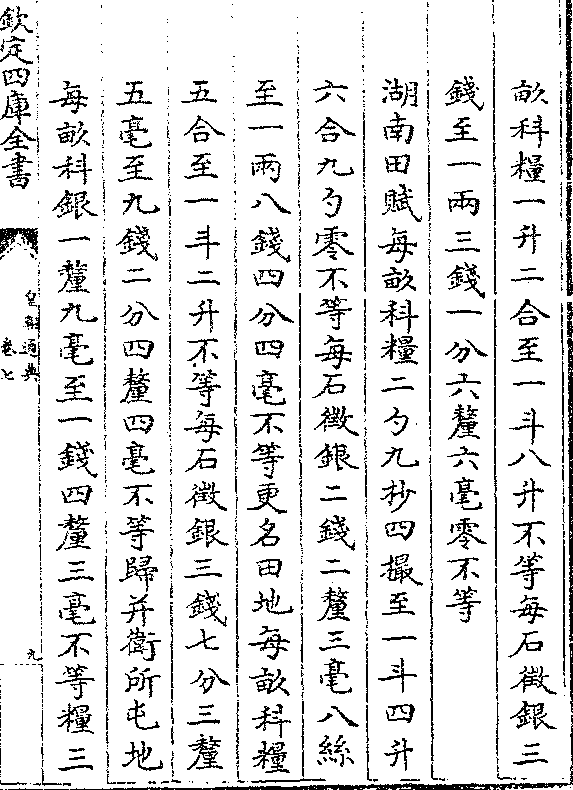 畝科糧一升二合至一斗八升不等每石徵銀三
錢至一兩三錢一分六釐六毫零不等
湖南田賦每畝科糧二勺九抄四撮至一斗四升
六合九勺零不等每石徵銀二錢二釐三毫八絲
至一兩八錢四分四毫不等更名田地每畝科糧
五合至一斗二升不等每石徵銀三錢七分三釐
五毫至九錢二分四釐四毫不等歸并衛所屯地
每畝科銀一釐九毫至一錢四釐三毫不等糧三
欽定四庫全書
皇朝通典
卷七
九